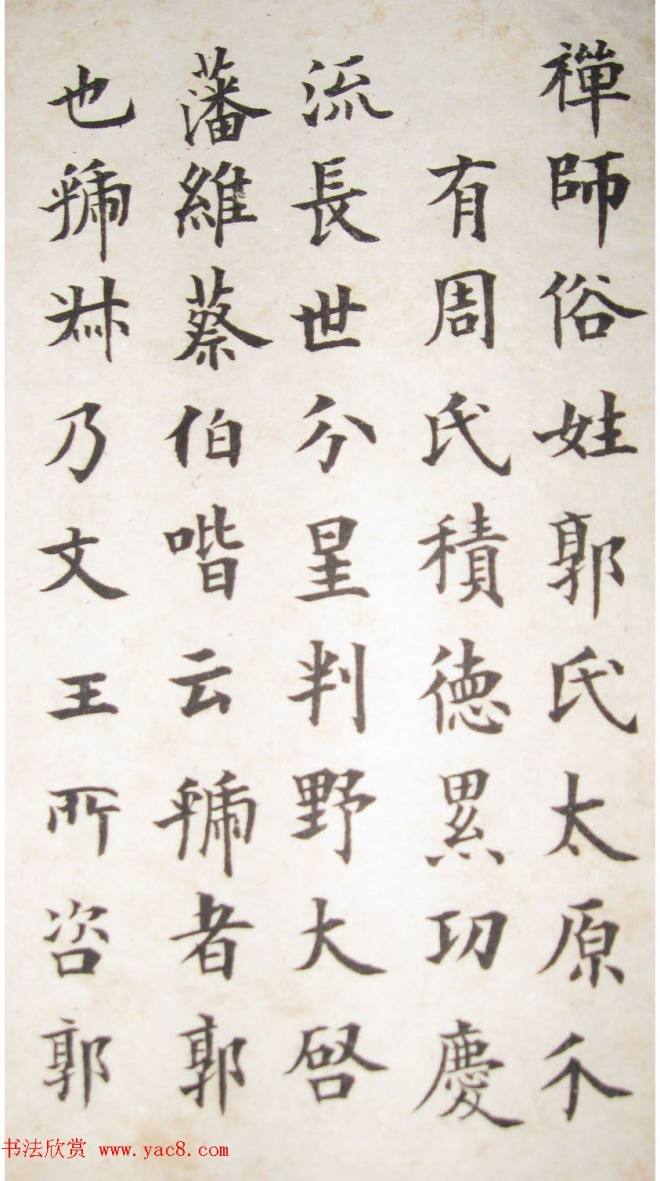 禪師俗姓郭氏太原人
有周氏積德累功慶
流長世分星判野大啓
藩維蔡伯喈云虢者郭
也虢叔乃文王所咨郭
书法欣赏 www.yac8.com